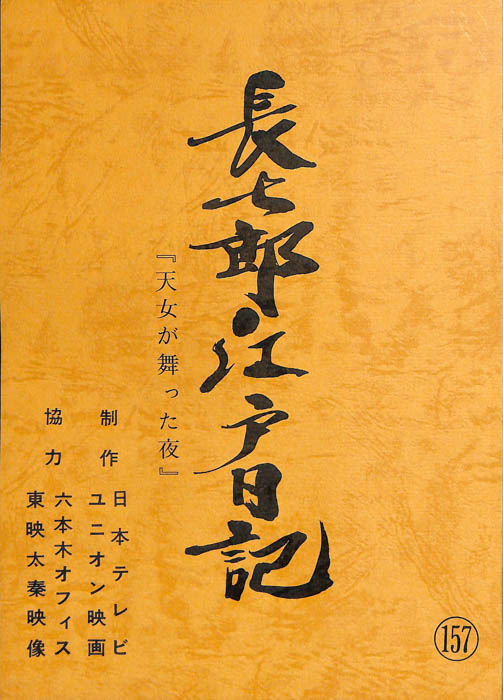 長七郎江戸日記
『天女が舞った夜』
制作 日本テレビ
ユニオン映画
協力 六本木オフィス
東映太秦映像
157